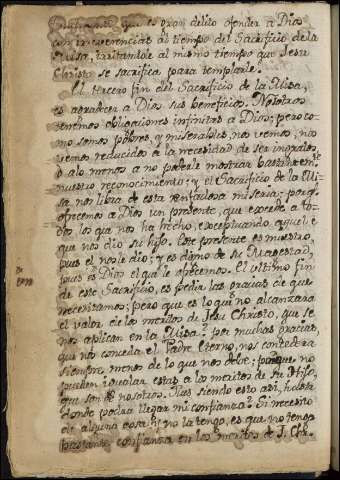 que es gran delito ofender a Dios
con irreverencias al tiempo del Sacrificio de la
Misa, irritandole al mismo tiempo que Jesu
Christo se sacrifica para templarle.
El tercero fin del Sacrificio de la Misa,
es agradecer a Dios sus beneficios. Nosotros
tenemos obligaciones infinitas a Dios; pero co-
mo somos pobres, y miserables, nos vemos, nos
vemos reducidos a la necesidad de ser ingratos,
o alo menos a no poderle mostrar bastantem.te
nuestro reconocimiento; y el Sacrificio de la Mi-
sa nos libra de esta enfadosa miseria; porq.e
ofrecemos a Dios un presente, que excede a to-
dos los que nos ha hecho, exceptuando, aquel e
que nos dio su hijo. Este presente es nuestro,
pues el nosle dio; y es digno de su Magestad,
pues es Dios el q.e le ofrecemos. El ultimo fin
de este Sacrificio, es pedir las gracias de que
necesitamos; pero que es lo que no alcanzara
el valor de los meritos de Jesu Christo, que se
nos aplican en la Misa? por muchas gracias,
que nos conceda el Padre Eterno, nos concedera
siempre menos de lo que nos debe; porque no
pueden igualar estas a los meritos de su Hijo,
que son nuestros. Pues siendo esto asi, hasta
donde podra llegar mi confianza? Si necesito
de alguna cosa, y no la tengo, es que no tengo
bastante confianza en los meritos de J. Chr.